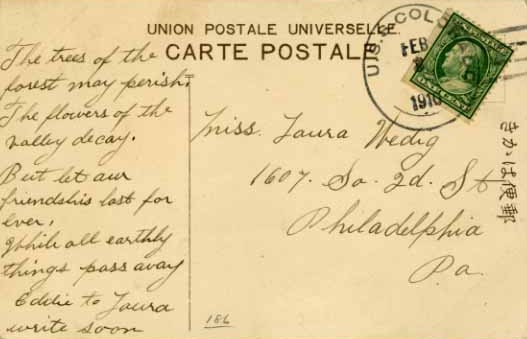 UNION POSTALE UNIVERSELLE.
CARTE POSTALE
The trees of the
forest may perish.
The flowers of the
valley decay.
But let our
friendship last for
ever,
While all earthly
things pass away
Eddie to Laura
write soon
Miss. Laura Wedig
1607. So. 2d. St
Philadelphia
Pa.
186
U.S.S. COLO
FEB
1910
ONE CENT
きかは便郵